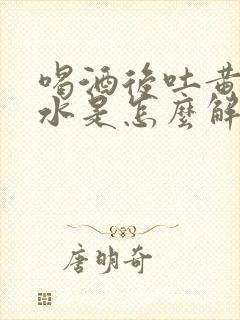 喝酒後吐黃
水是怎麼解
唐明奇